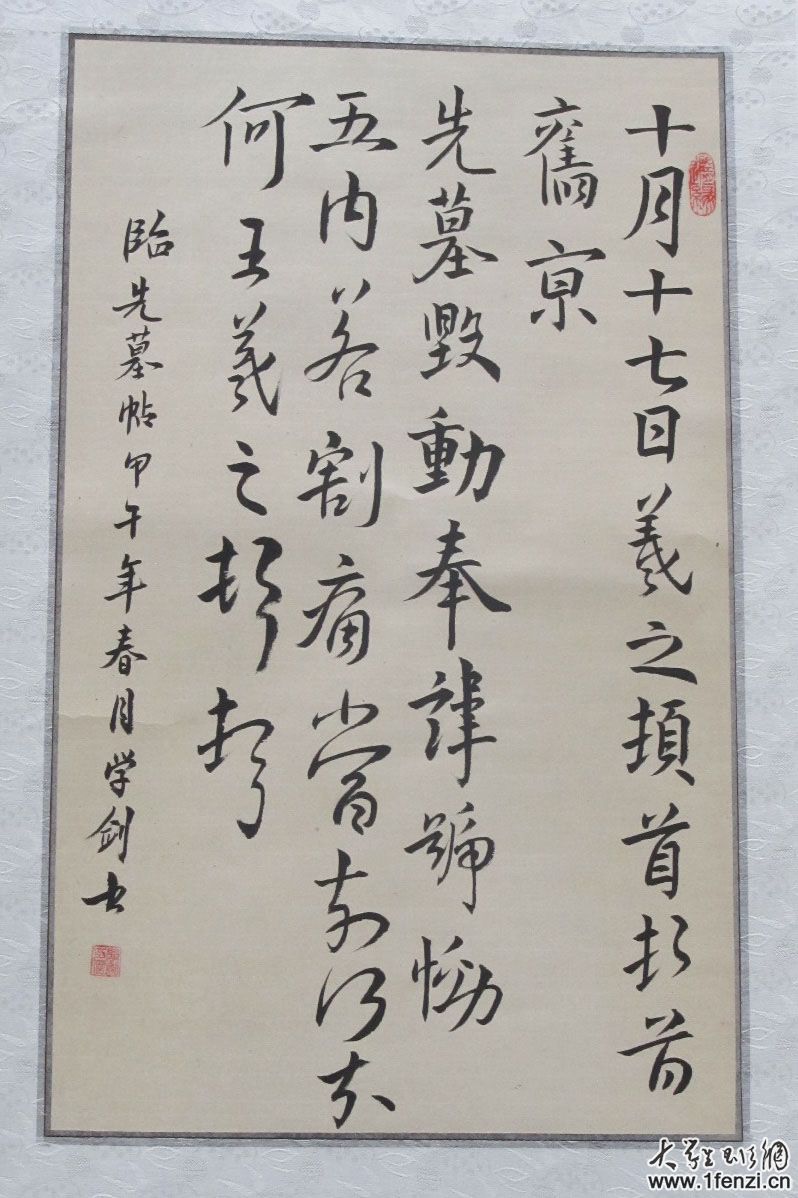 十月十七日羲之頓首頓首
舊京
先墓毀動奉諱號慟
五内若割痛當奈何奈
何王羲之頓首頓首
臨先墓帖甲午年春月学剑书
大学生
www.1fenzi.cn